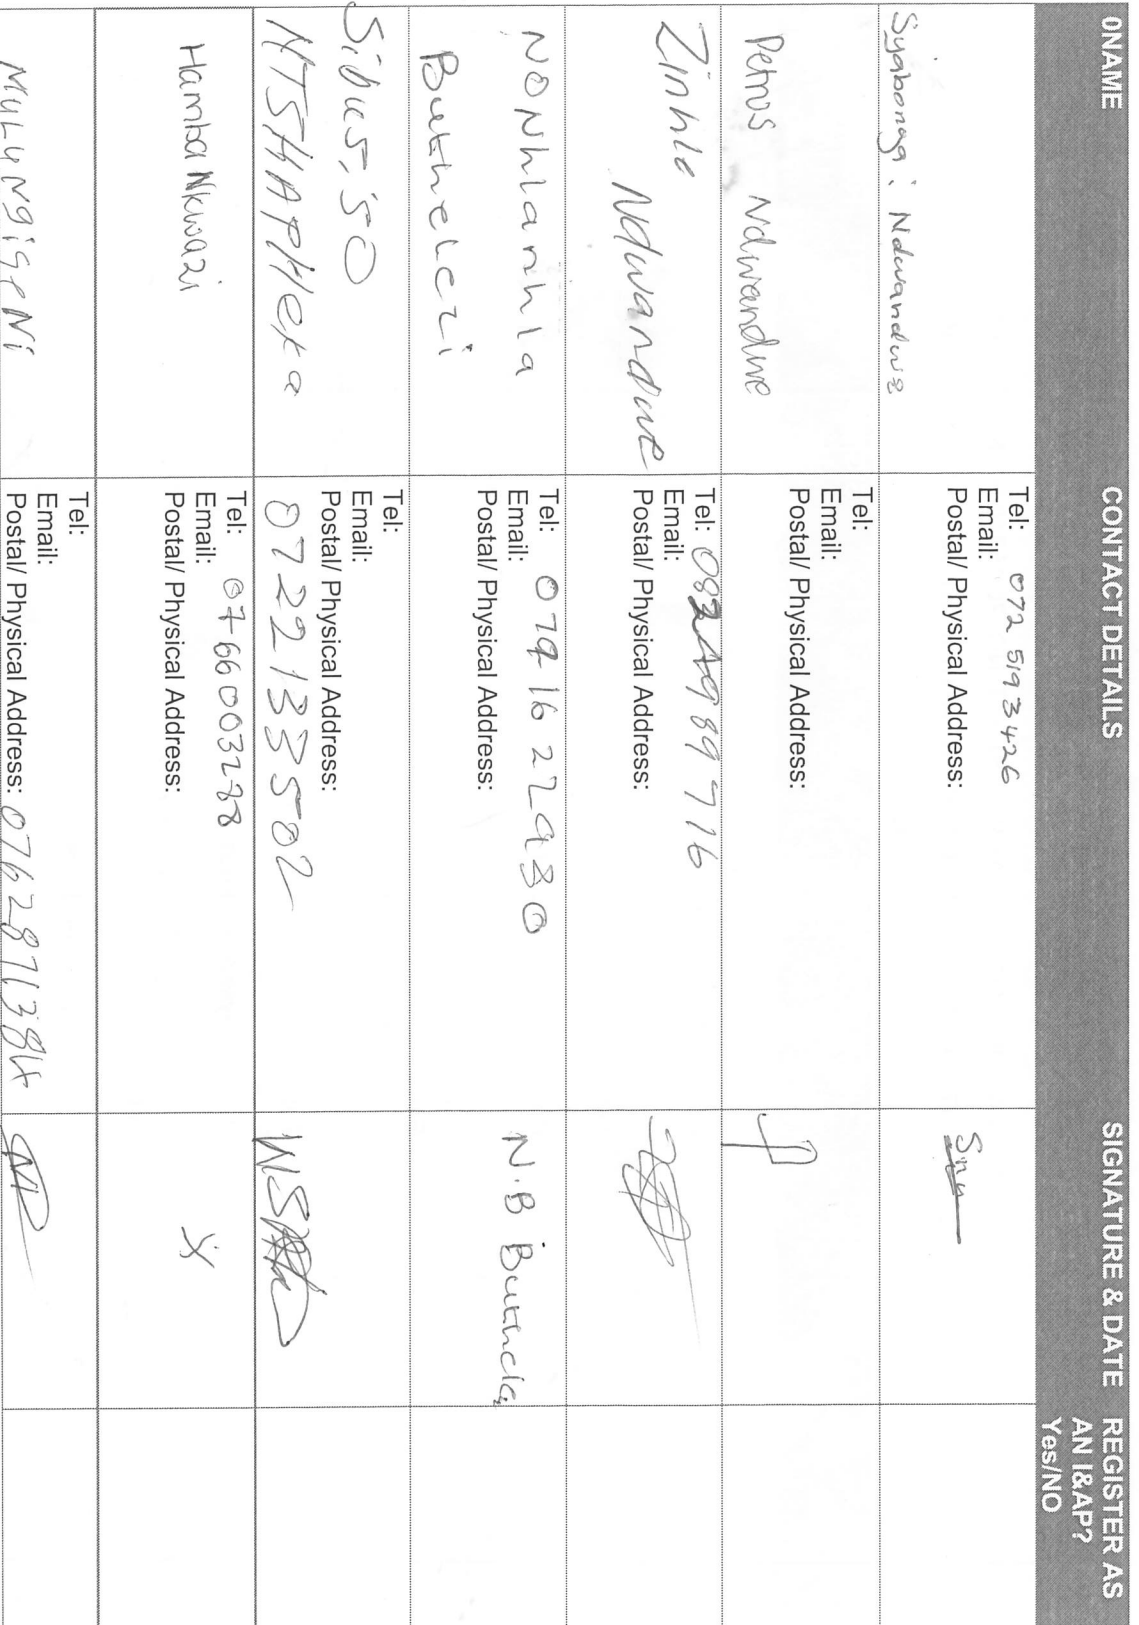 0NAME CONTACT DETAILS SIGNATURE & DATE REGISTER AS
AN I&AP?
Yes/NO
Syabonga : Ndwandwe
Tel: 072 5193426
Email:
Postal/ Physical Address:
Petros Ndwandwe
Tel:
Email:
Postal/ Physical Address:
Zinhle
Ndwandwe
Tel:
Email:
Postal/ Physical Address:
NONhlanhla
Buthelezi
Tel: 079 16 22930
Email:
Postal/ Physical Address:
N.B Buthelezi
Sibusiso
NTSHAPHeKa
Tel:
Email:
Postal/ Physical Address:
0722133502
Hamba Nkwazi
Tel: 0766003288
Email:
Postal/ Physical Address:
MuLuNgiseNi
Tel:
Email:
Postal/ Physical Address: 0762871384